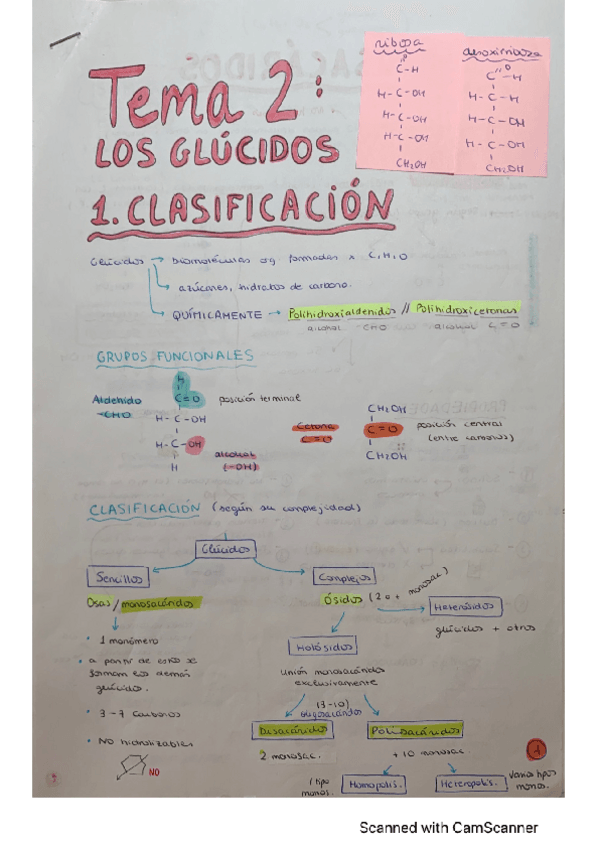 ribosa
desoxirribosa
O
C-H
H-C-OH
H-C-OH
H-C-OH
CH₂OH
O
C-H
H-C-H
H-C-OH
H-C-OH
CH₂OH
Tema 2:
LOS GLÚCIDOS
1. CLASIFICACIÓN
Glúcidos → biomoléculas org formadas x C, H, O
→ azúcares, hidratos de carbono.
→ QUÍMICAMENTE → Polihidroxialdehidos // Polihidroxicetonas
alcohol -CHO alcohol C=O
GRUPOS FUNCIONALES
Aldehído
-CHO
H
C=O
posición terminal
H-C-OH
H-C-OH
H
alcohol
(-OH)
Cetona
C=O
CH₂OH
C=O
CH₂OH
posición central
(entre carbonos)
CLASIFICACIÓN (según su complejidad)
Glúcidos
Sencillos
Complejos
Osas/monosacáridos
Ósidos (2 o + monosac)
Heterósidos
glúcidos + otros
• 1 monómero
• a partir de estos se
forman los demás
glúcidos.
• 3-7 carbonos
• NO hidrolizables
NO
Holósidos
Unión monosacáridos
exclusivamente
(3-10)
oligosacáridos
Disacáridos
2 monosac.
Polisacáridos
+10 monosac
1 tipo
monos.
Homopolis.
Heteropolis.
Varios tipos
monos.
1
Scanned with CamScanner